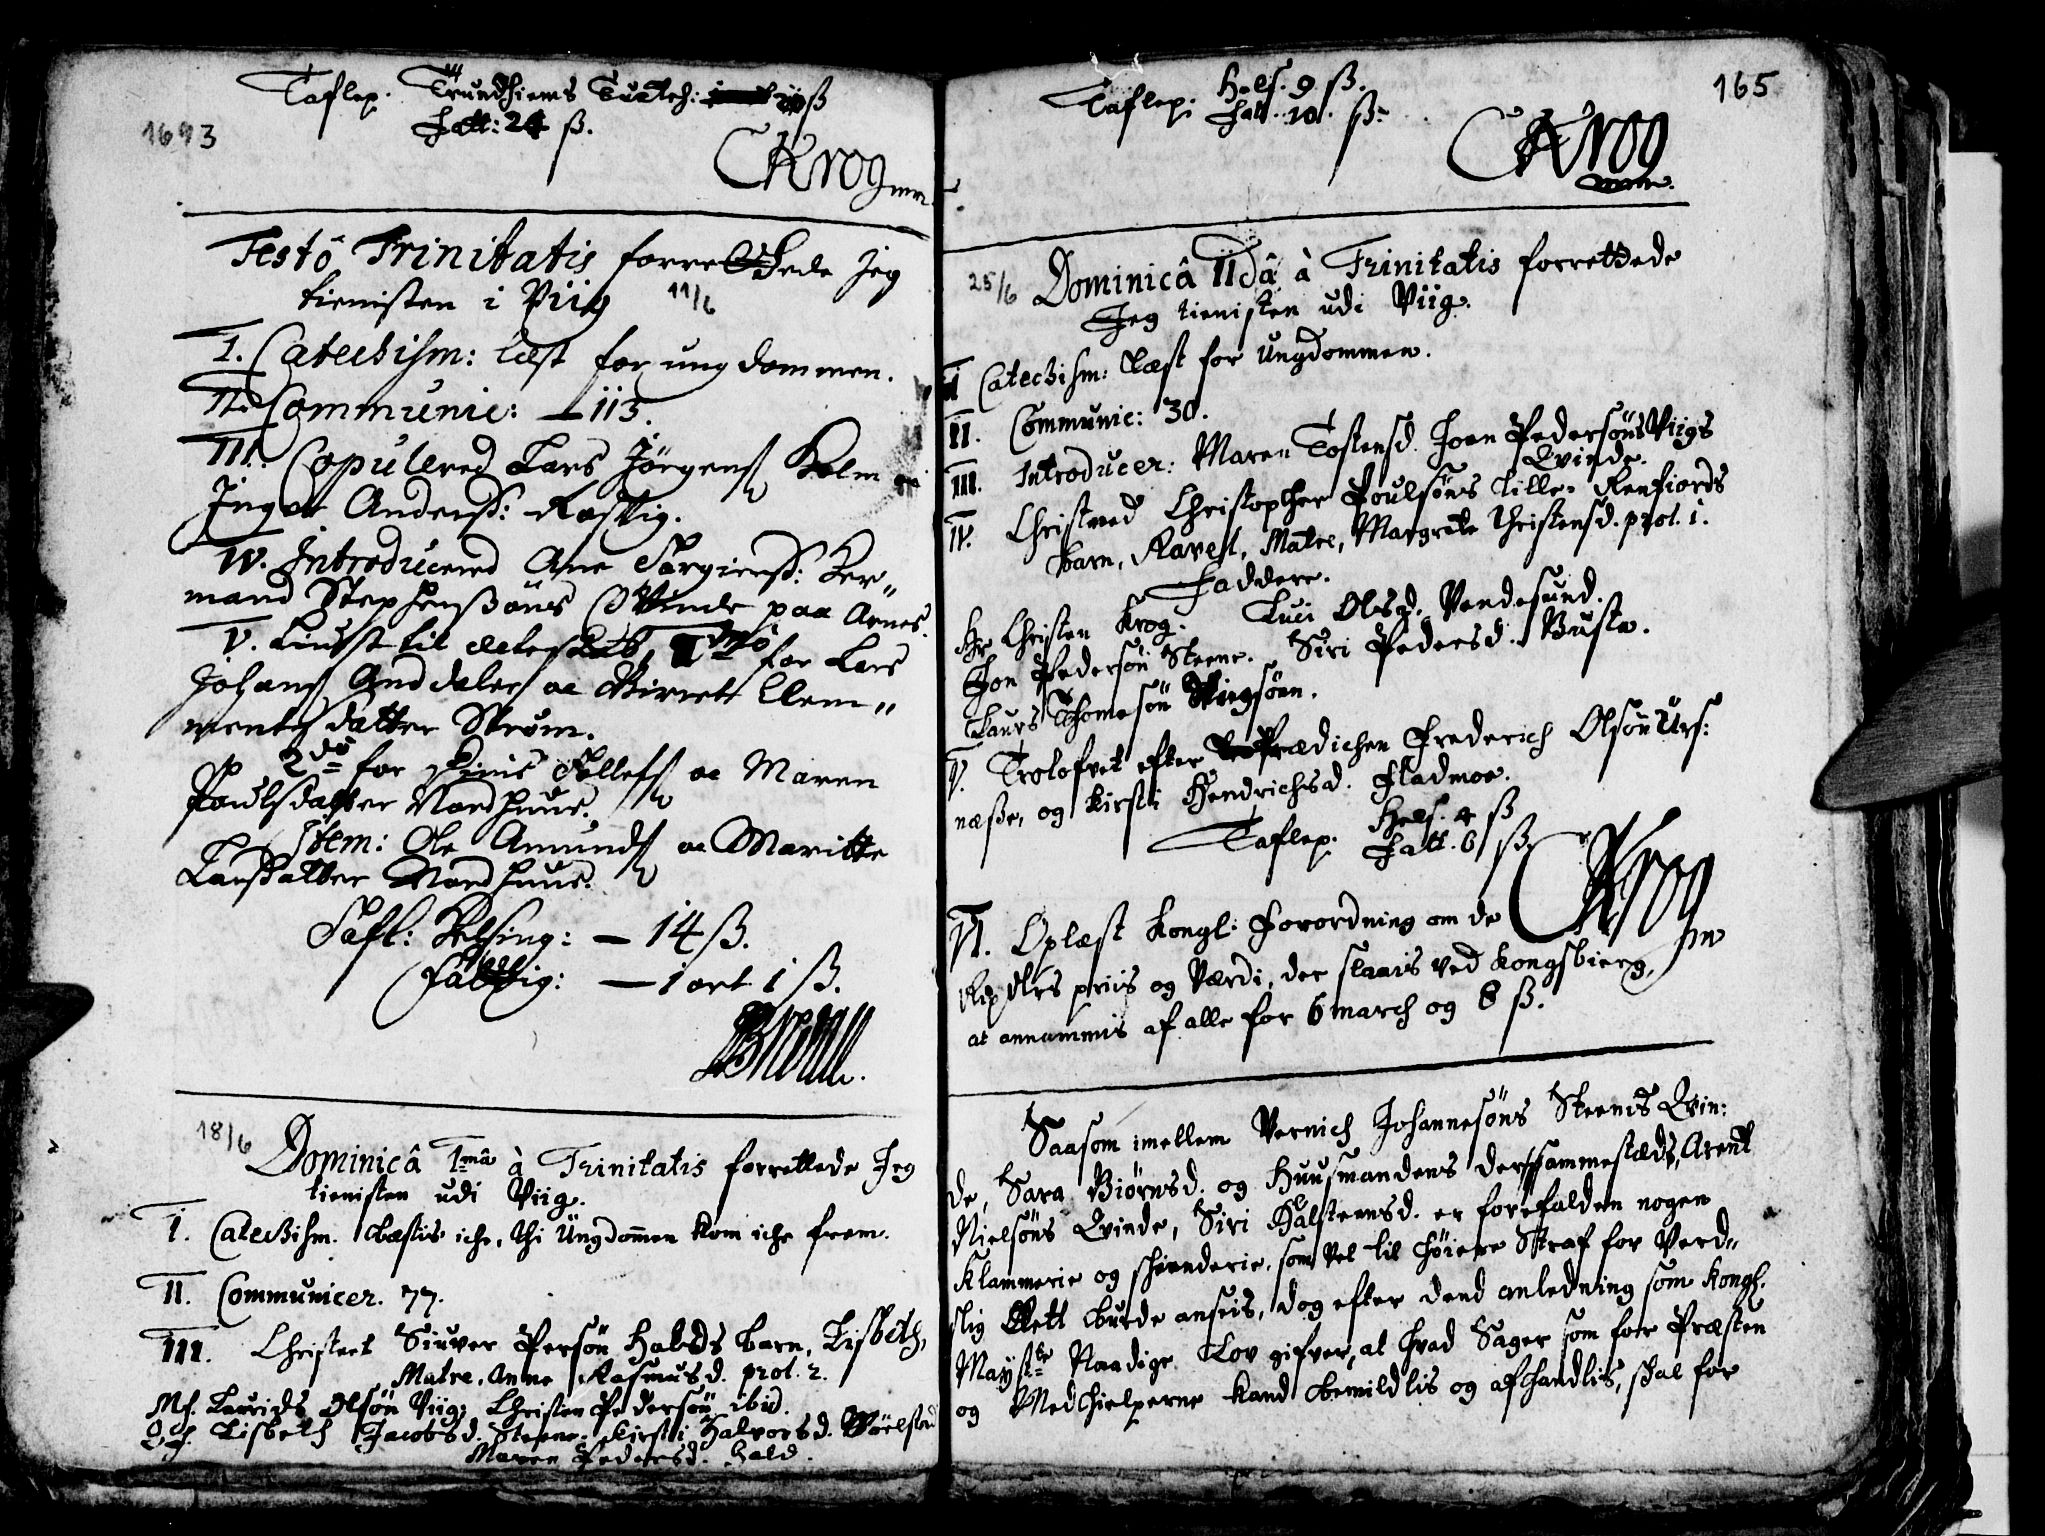 Taflep. Trundhiems Tuctch: 20 ß
1693
Fatt: 24 ß.
CKrog mm
Festô Trinitatis forrettede Jeg
tienisten i Viig 11/6
I. Catechism: læst for ungdommen.
II. Communic: — 113.
III. Copulered Lars Jørgens Holm oc
Inger Anderss: Rossvig.
IV. Introducered Ane Torgierss: Her-
mand Stephenssøns Qvinde paa Arnes.
V. Liust til ecteskab, 1mo for Lars
Johans Anddaler oc Birret Clem-
mentsdatter Strøm.
2do for Tollefs oc Maren
Poulsdatter Nordhuus.
Item: Ole Amunds oc Maritte
Larsdatter Nordhuus.
Tafl: Helsing: — 14 ß.
Fattig: — 1 ort 1 ß.
18/6 Dominicâ 1mâ à Trinitatis forrettede Jeg
tienisten udi Viig.
I. Catechism. læstis iche, thi Ungdommen kom iche frem.
II. Communicer. 77.
III. Christnet Siuver Persøn Halds barn, Lisbeth,
Matre, Anne Rasmusd. prol. 2.
Mf. Laurids Olsøn Viig, Christen Pedersøn ibid.
Qf. Lisbeth Jacobsd. Steene, Kirsti Halvorsd. Møelstad
Maren Pedersd. Hald.
165
Taflep. Hels. 9 ß.
Fatt. 10. ß.
CKrog
mm.
25/6 Dominicâ IIdâ à Trinitatis forrettede
Jeg tienisten udi Viig.
I Catechism: læst for Ungdommen.
II. Communic: 30.
III. Introducer: Maren Tostensd. Joen Pedersøns Viigs
Qvinde.
IV. Christned Christopher Poulsøns Lille-Renfiords
barn, Matre, Margrete Christensd. prol. 1.
Faddere.
Hr Christen Krog. Luci Olsd. Vendesund.
Jon Pedersøn Steene. Siri Pedersd. Busta.
Laurs Thomesøn
V. Trolofvet efter Prædichen Frederich Olsøn Urs:
næsse, og Kirsti Hendrichsd. Fladmoe.
Taflep. Hels. 4 ß
Fatt. 6 ß.
CKrog
mm
VI. Oplæst Kongl: Forordning om de
Rixdlrs priis og Værdi, der slaais ved Kongsbierg,
at annammis af alle for 6 march og 8 ß.
Saasom imellem Vernich Johannesøns Steenes Qvin:
de, Sara Biørnsd. og Huusmandens dersammestæds, Arent
Nielsøns Qvinde, Siri Halsteensd. er forefalden nogen
Klammerie og schienderie, som vel til høiere Straf for Verds-
lig Rett burde anseis, dog efter dend anledning som Kongl.
Mayst:te Naadige Lov gifver, at hvad Sager som for Præsten
og Medhielperne kand bemildlis og afhandlis, skal for